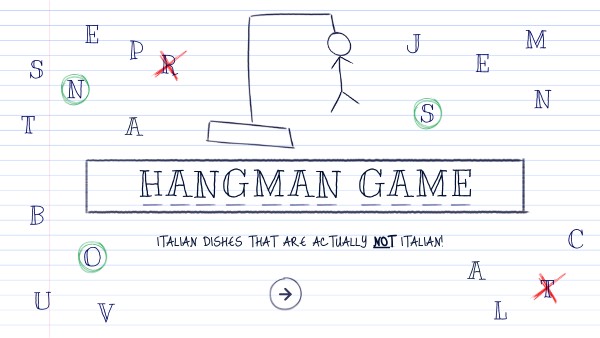 E
P
R
J
M
E
S
N
N
S
T
A
HANGMAN GAME
ITALIAN DISHES THAT ARE ACTUALLY NOT ITALIAN!
B
C
O
A
T
U
V
L